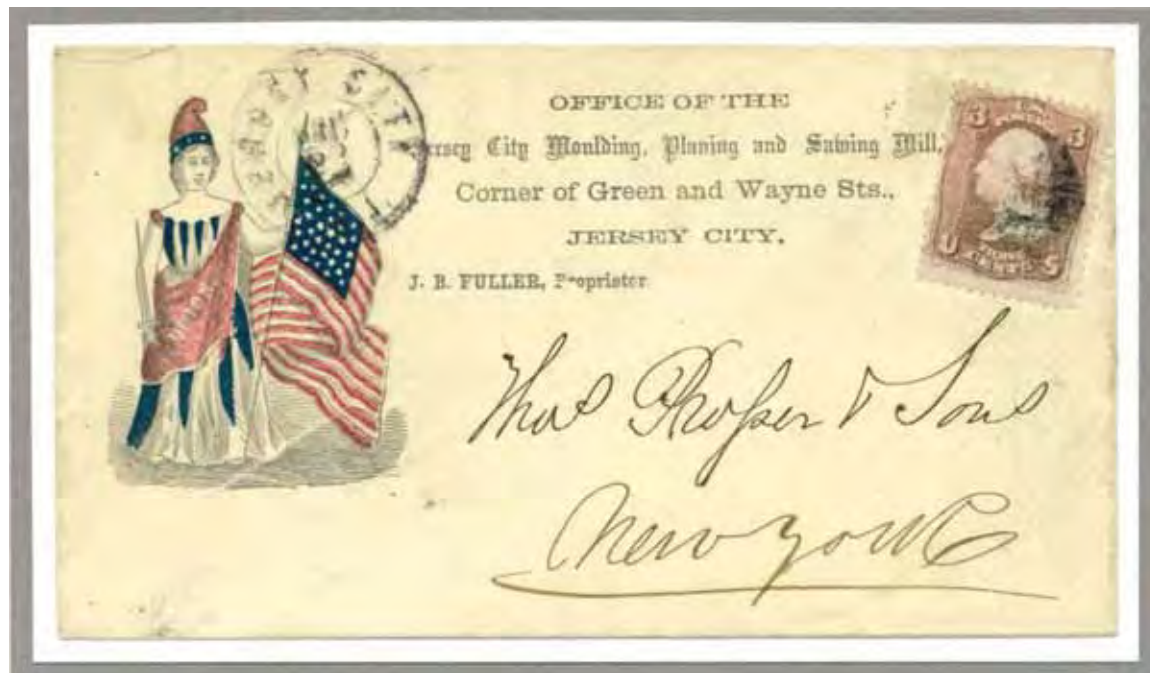 JERSEY CITY
OFFICE OF THE
Jersey City Moulding, Planing and Sawing Mill,
Corner of Green and Wayne Sts.,
JERSEY CITY.
J. B. FULLER, Proprietor
3 3
U S
Thos Prosser & Sons
New York